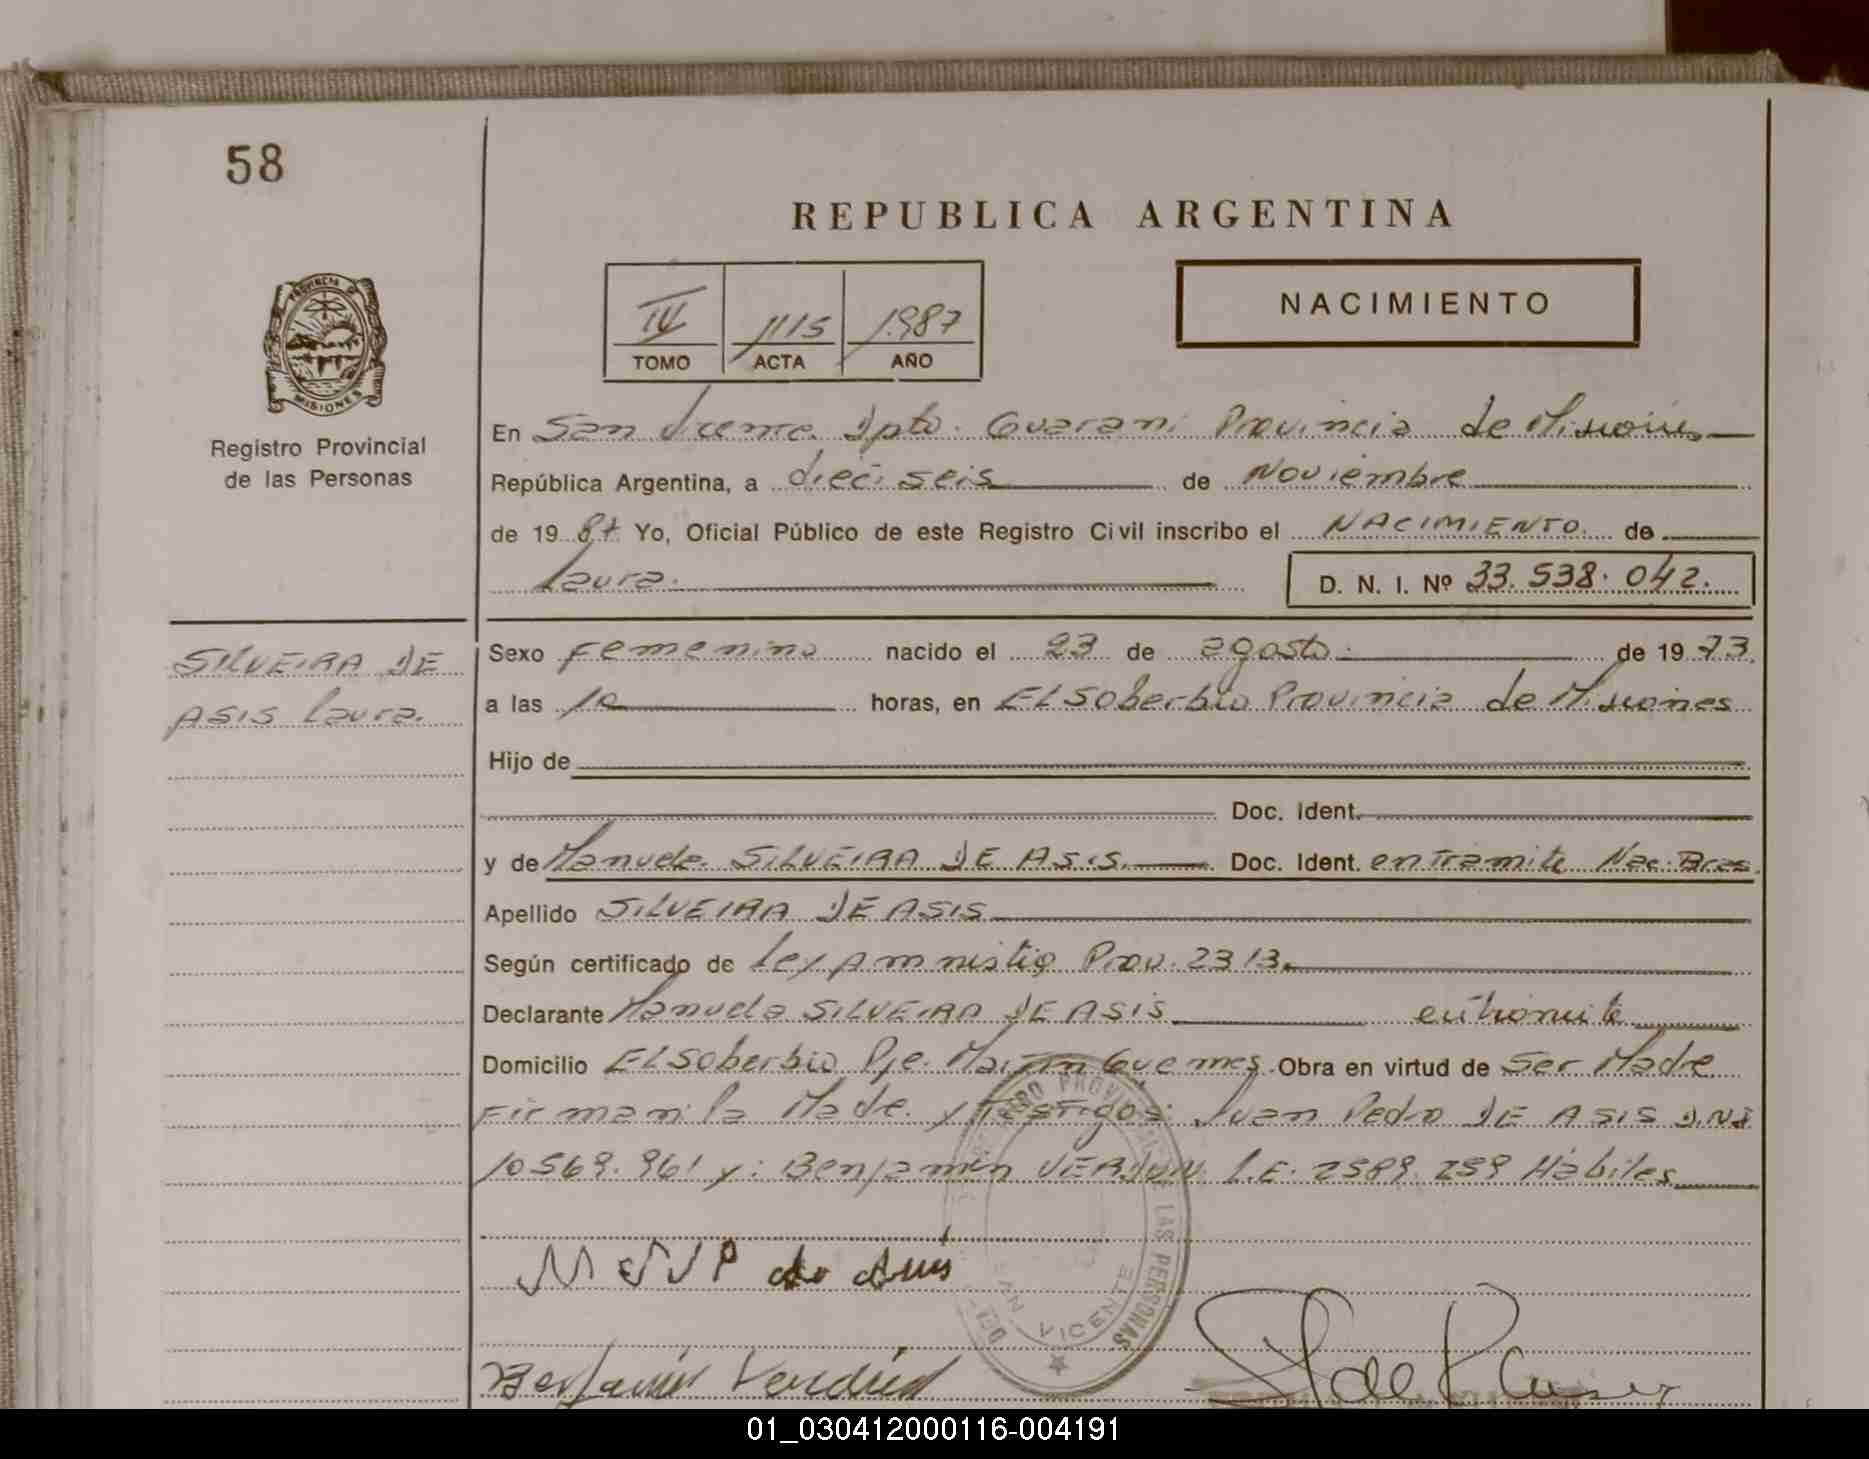 58
REPUBLICA ARGENTINA
PROVINCIA DE
MISIONES
Registro Provincial
de las Personas
IV
TOMO
1115
ACTA
1.987
AÑO
NACIMIENTO
En San Vicente. Dpto. Guarani Provincia de Misiones
República Argentina, a dieciseis de Noviembre
de 19 87 Yo, Oficial Público de este Registro Civil inscribo el NACIMIENTO. de
Laura.
D. N. I. Nº 33. 538. 042.
SILVEIRA DE
ASIS Laura.
Sexo Femenino nacido el 23 de agosto. de 19 73.
a las 10 horas, en El Soberbio Provincia de Misiones
Hijo de
Doc. Ident.
y de Manuela SILVEIRA DE ASIS. Doc. Ident. en tramite Nac. Bras.
Apellido SILVEIRA DE ASIS
Según certificado de Ley Amnistia Prov. 2313.
Declarante Manuela SILVEIRA DE ASIS en tramite
Domicilio El Soberbio Pje. Martin Guemes. Obra en virtud de Ser Madre
Firman: la Madre y Testigos: Juan Pedro DE ASIS D.N.I
10569.961 y: Benjamin VERDUN L.E. 2589.259 Hábiles
SAN VICENTE
Benjamin Verdun
01_030412000116-004191